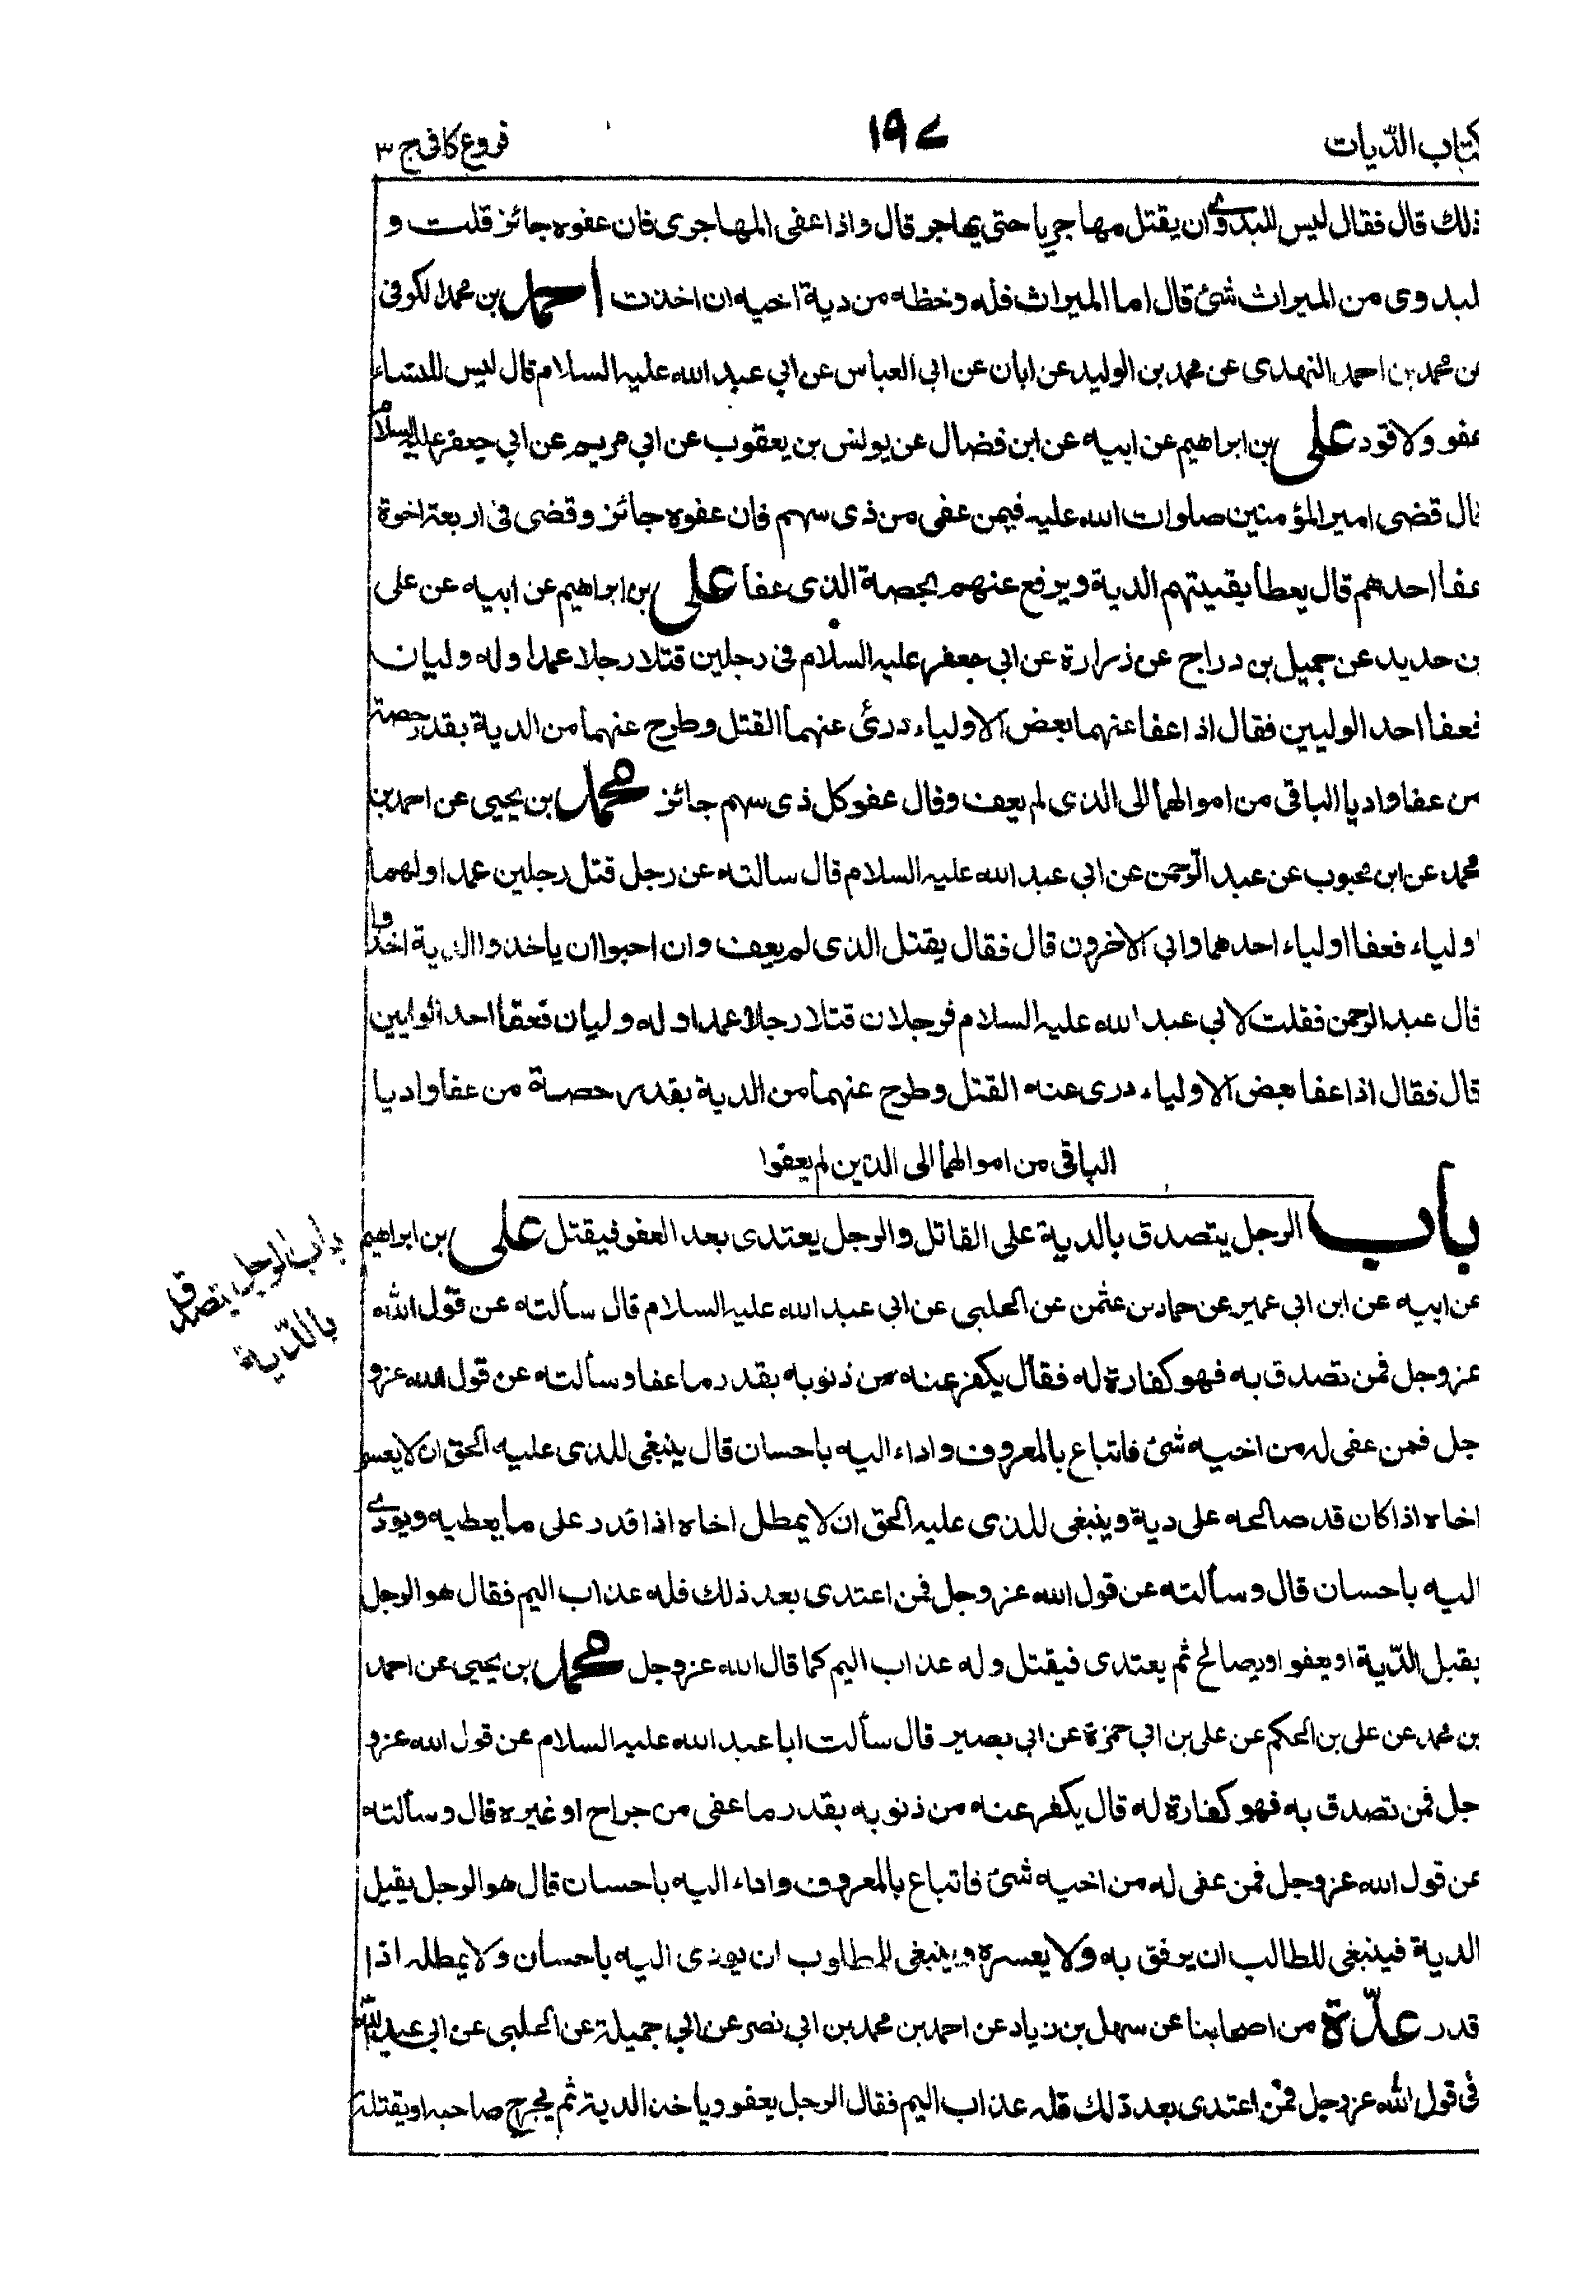 كتاب الديات ١٩٧ فروع كافى ج ٣
ذلك قال فقال ليس للبدوى ان يقتل مهاجريا حتى يهاجر قال واذا عفى المهاجرى فان عفوه جائز قلت و
لبدوى من الميراث شئ قال اما الميراث فله وحظه من دية اخيه ان اخذت احمد بن محمد الكوفى
عن محمد بن احمد النهدى عن محمد بن الوليد عن ابان عن ابى العباس عن ابى عبد الله عليه السلام قال ليس للنساء
عفو ولا قود على بن ابراهيم عن ابيه عن ابن فضال عن يونس بن يعقوب عن ابى مريم عن ابى جعفر عليه السلام
قال قضى امير المؤمنين صلوات الله عليه فيمن عفى من ذى سهم فان عفوه جائز وقضى فى اربعة اخوة
عفا احدهم قال يعطا بقيتهم الدية ويرفع عنهم بحصة الذى عفا على بن ابراهيم عن ابيه عن على
بن حديد عن جميل بن دراج عن زرارة عن ابى جعفر عليه السلام فى رجلين قتلا رجلا عمدا وله وليان
فعفا احد الوليين فقال اذا عفا عنهما بعض الاولياء درئ عنهما القتل وطرح عنهما من الدية بقدر حصة
من عفا واديا الباقى من اموالهما الى الذى لم يعف وقال عفو كل ذى سهم جائز محمد بن يحيى عن احمد بن
محمد عن ابن محبوب عن عبد الرحمن عن ابى عبد الله عليه السلام قال سالته عن رجل قتل رجلين عمدا ولهما
اولياء فعفا اولياء احدهما وابى الاخرون قال فقال يقتل الذى لم يعف وان احبوا ان ياخذوا الدية اخذوا
قال عبد الرحمن فقلت لابى عبد الله عليه السلام فرجلان قتلا رجلا عمدا وله وليان فعفا احد الوليين
قال فقال اذا عفا بعض الاولياء درى عنه القتل وطرح عنهما من الدية بقدر حصة من عفا واديا
الباقى من اموالهما الى الذين لم يعفوا
باب الرجل يتصدق بالدية على القاتل والرجل يعتدى بعد العفو فيقتل على بن ابراهيم
باب الرجل يتصدق
بالدّية
عن ابيه عن ابن ابى عمير عن حماد بن عثمن عن الحلبى عن ابى عبد الله عليه السلام قال سألته عن قول الله
عز وجل فمن تصدق به فهو كفارة له فقال يكفر عنه من ذنوبه بقدر ما عفا وسألته عن قول الله عز و
جل فمن عفى له من اخيه شئ فاتباع بالمعروف واداء اليه باحسان قال ينبغى للذى عليه الحق ان لا يعسر
اخاه اذا كان قد صالحه على دية وينبغى للذى عليه الحق ان لا يمطل اخاه اذا قدر على ما يعطيه ويودى
اليه باحسان قال وسألته عن قول الله عز وجل فمن اعتدى بعد ذلك فله عذاب اليم فقال هو الرجل
يقبل الدّية او يعفو او يصالح ثم يعتدى فيقتل وله عذاب اليم كما قال الله عز وجل محمد بن يحيى عن احمد
بن محمد عن على بن الحكم عن على بن ابى حمزة عن ابى بصير قال سألت ابا عبد الله عليه السلام عن قول الله عز و
جل فمن تصدق به فهو كفارة له قال يكفر عنه من ذنوبه بقدر ما عفى من جراح او غيره قال وسألته
عن قول الله عز وجل فمن عفى له من اخيه شئ فاتباع بالمعروف واداء اليه باحسان قال هو الرجل يقبل
الدية فينبغى للطالب ان يرفق به ولا يعسره وينبغى للمطلوب ان يودى اليه باحسان ولا يمطله اذا
قدر عدّة من اصحابنا عن سهل بن زياد عن احمد بن محمد بن ابى نصر عن ابى جميلة عن الحلبى عن ابى عبد الله
فى قول الله عز وجل فمن اعتدى بعد ذلك فله عذاب اليم فقال الرجل يعفو وياخذ الدية ثم يجرح صاحبه او يقتله